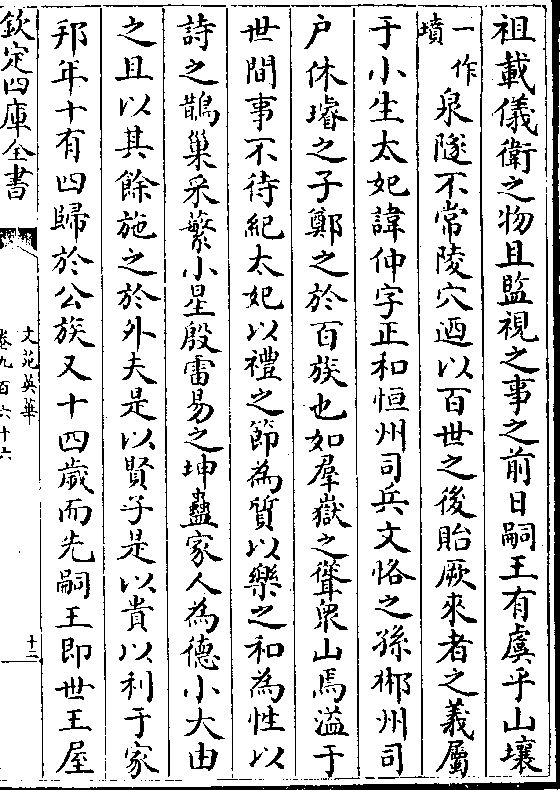 祖載儀衛之物且監視之事之前日嗣王有虞乎山壤
一作墳泉隧不常陵穴迺以百世之後貽厥來者之義屬
于小生太妃諱仲字正和恒州司兵文恪之孫郴州司
户休璿之子鄭之於百族也如羣嶽之聳衆山焉溢于
世間事不待紀太妃以禮之節為質以樂之和為性以
詩之鵲巢采蘩小星殷雷易之坤蠱家人為德小大由
之且以其餘施之於外夫是以賢子是以貴以利于家
邦年十有四歸於公族又十四歲而先嗣王即世王屋
欽定四庫全書
文苑英華
卷九百六十六
十二